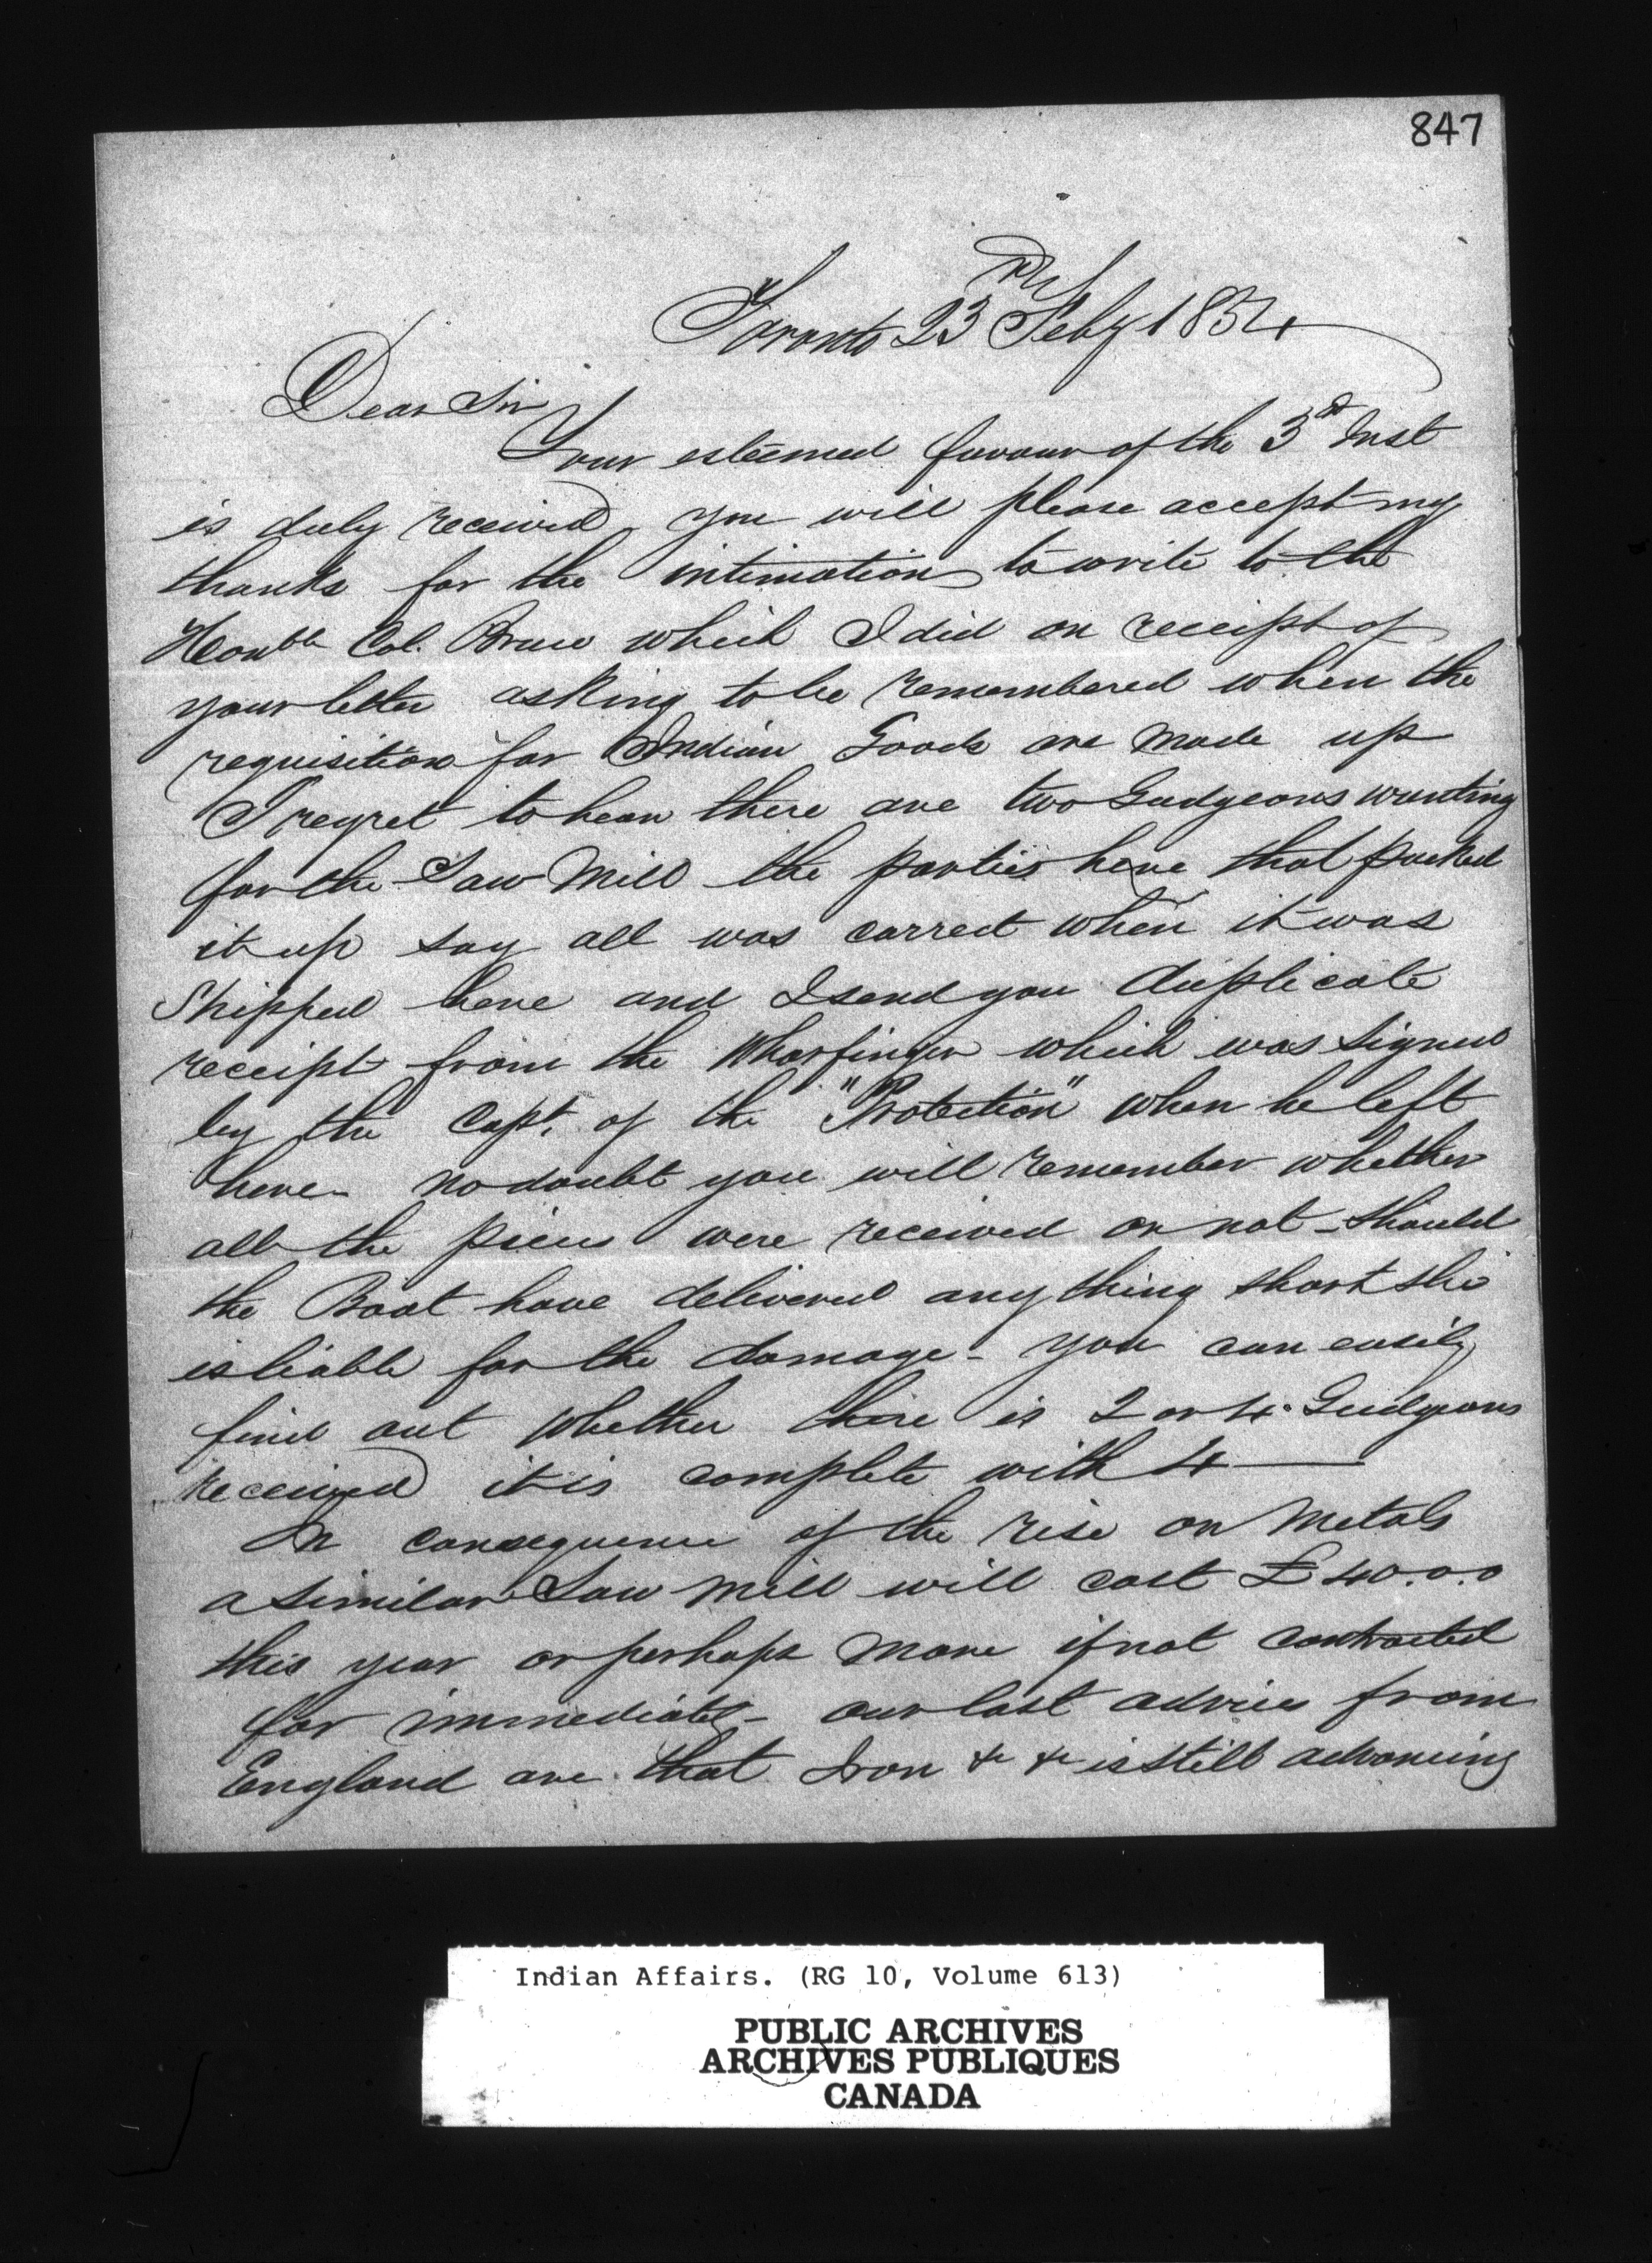 847
Toronto 23rd Feby 1854
Dear Sir
Your esteemed favour of the 3d Inst
is duly received, you will please accept my
thanks for the intimation to write to the
Honble Col. Bruce which I did on receipt of
your letter asking to be remembered when the
requisition for Indian Goods are made up
I regret to hear there are two Gudgeons wanting
for the Saw Mill the parties here that packed
it up say all was correct when it was
Shipped here and I send you duplicate
receipt from the Wharfinger which was signed
by the Capt. of the "Protection" when he left
here - no doubt you will remember whether
all the pieces were received or not - should
the Boat have delivered any thing short she
is liable for the damage - you can easily
find out whether there is 2 or 4 Gudgeons
received it is complete with 4
In consequence of the rise on Metals
a similar Saw Mill will cost £40.0.0
this year or perhaps more if not contracted
for immediately - our last advices from
England are that Iron &c &c is still advancing
Indian Affairs. (RG 10, Volume 613)
PUBLIC ARCHIVES
ARCHIVES PUBLIQUES
CANADA